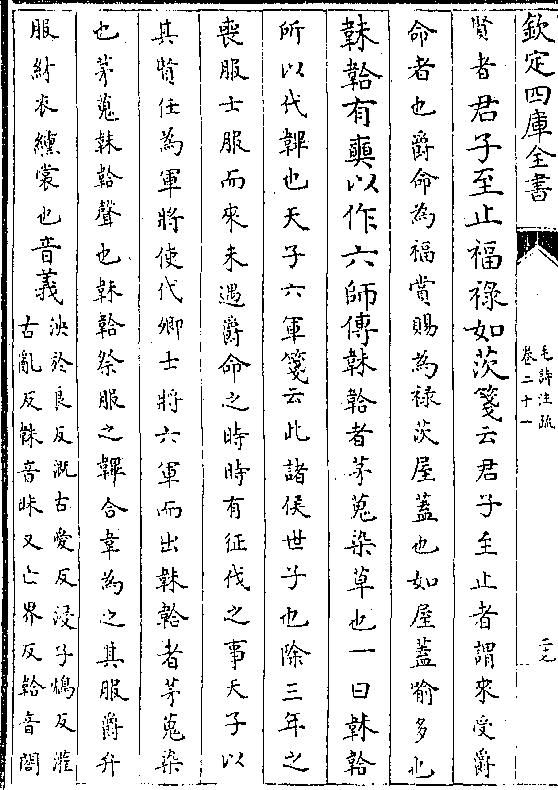 欽定四庫全書
毛詩注疏
卷二十一
賢者君子至止福祿如茨箋云君子至止者謂來受爵
命者也爵命為福賞賜為祿茨屋蓋也如屋蓋喻多也
韎韐有奭以作六師傳韎韐者茅蒐染草也一曰韎韐
所以代韠也天子六軍箋云此諸侯世子也除三年之
喪服士服而來未遇爵命之時時有征伐之事天子以
其賢任為軍將使代卿士將六軍而出韎韐者茅蒐染
也茅蒐韎韐聲也韎韐祭服之韠合韋為之其服爵弁
服紂衣纁裳也音義
泱於良反溉古愛反浸子鴆反灌
古亂反韎音昧又亡界反韐音閤